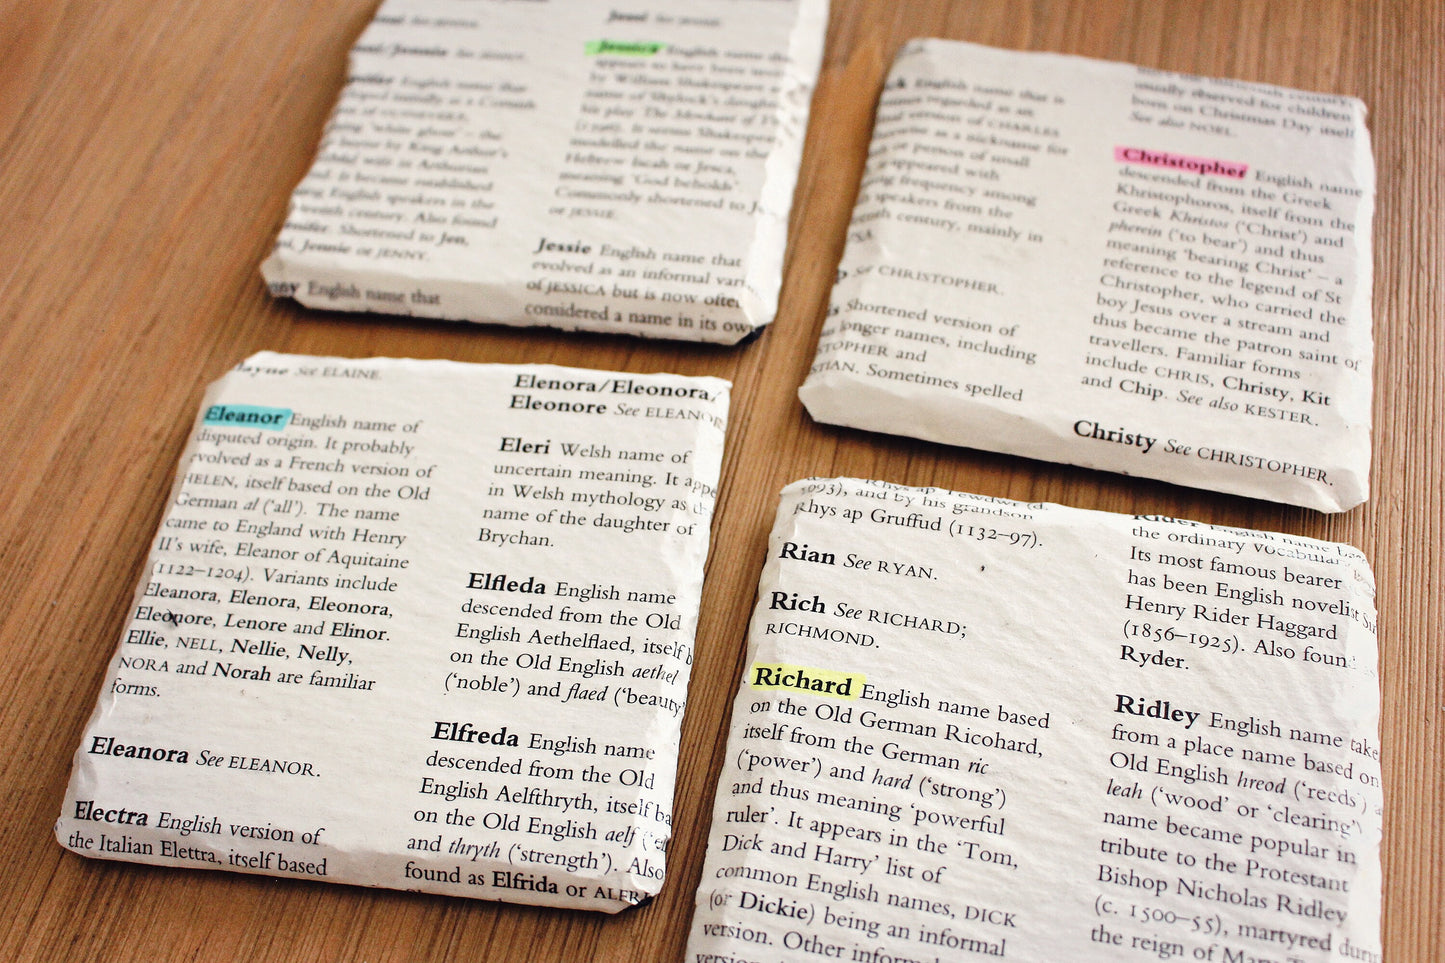 See JENNIFER.
English name that
a Cornish
'white ghost' – the
by King Arthur's
wife in Arthurian
It became established
English speakers in the
century. Also found
Shortened to Jen,
Jennie or JENNY.
English name that
See JESSIE.
Jessica English name that
appears to have been
by William Shakespeare
name of Shylock's daughter
his play The Merchant of
(1596). It seems Shakespeare
modelled the name on the
Hebrew Iscah or Jesca,
meaning 'God beholds'.
Commonly shortened to
or JESSIE.
Jessie English name that
evolved as an informal
of JESSICA but is now often
considered a name in its own
English name that is
regarded as an
version of CHARLES
as a nickname for
or person of small
appeared with
frequency among
speakers from the
century, mainly in
See CHRISTOPHER.
Shortened version of
longer names, including
and
Sometimes spelled
usually observed for children
born on Christmas Day itself
See also NOEL.
Christopher English name
descended from the Greek
Khristophoros, itself from the
Greek Khristos ('Christ') and
pherein ('to bear') and thus
meaning 'bearing Christ' – a
reference to the legend of St
Christopher, who carried the
boy Jesus over a stream and
thus became the patron saint of
travellers. Familiar forms
include CHRIS, Christy, Kit
and Chip. See also KESTER.
Christy See CHRISTOPHER.
See ELAINE.
Eleanor English name of
disputed origin. It probably
evolved as a French version of
HELEN, itself based on the Old
German al ('all'). The name
came to England with Henry
II's wife, Eleanor of Aquitaine
(1122–1204). Variants include
Eleanora, Elenora, Eleonora,
Eleonore, Lenore and Elinor.
Ellie, NELL, Nellie, Nelly,
NORA and Norah are familiar
forms.
Eleanora See ELEANOR.
Electra English version of
the Italian Elettra, itself based
Elenora/Eleonora/
Eleonore See ELEANOR
Eleri Welsh name of
uncertain meaning. It appe
in Welsh mythology as
name of the daughter of
Brychan.
Elfleda English name
descended from the Old
English Aethelflaed, itself b
on the Old English aethel
('noble') and flaed ('beauty'
Elfreda English name
descended from the Old
English Aelfthryth, itself ba
on the Old English aelf ('elf
and thryth ('strength'). Also
found as Elfrida or ALFR
Rhys ap Tewdwr (d.
1093), and by his grandson
Rhys ap Gruffud (1132–97).
Rian See RYAN.
Rich See RICHARD;
RICHMOND.
Richard English name based
on the Old German Ricohard,
itself from the German ric
('power') and hard ('strong')
and thus meaning 'powerful
ruler'. It appears in the 'Tom,
Dick and Harry' list of
common English names, DICK
(or Dickie) being an informal
version. Other
Rider English name
the ordinary vocabular
Its most famous bearer
has been English novelist Sir
Henry Rider Haggard
(1856–1925). Also foun
Ryder.
Ridley English name take
from a place name based on
Old English hreod ('reeds') a
leah ('wood' or 'clearing')
name became popular in
tribute to the Protestant
Bishop Nicholas Ridley
(c. 1500–55), martyred during
the reign of Mary